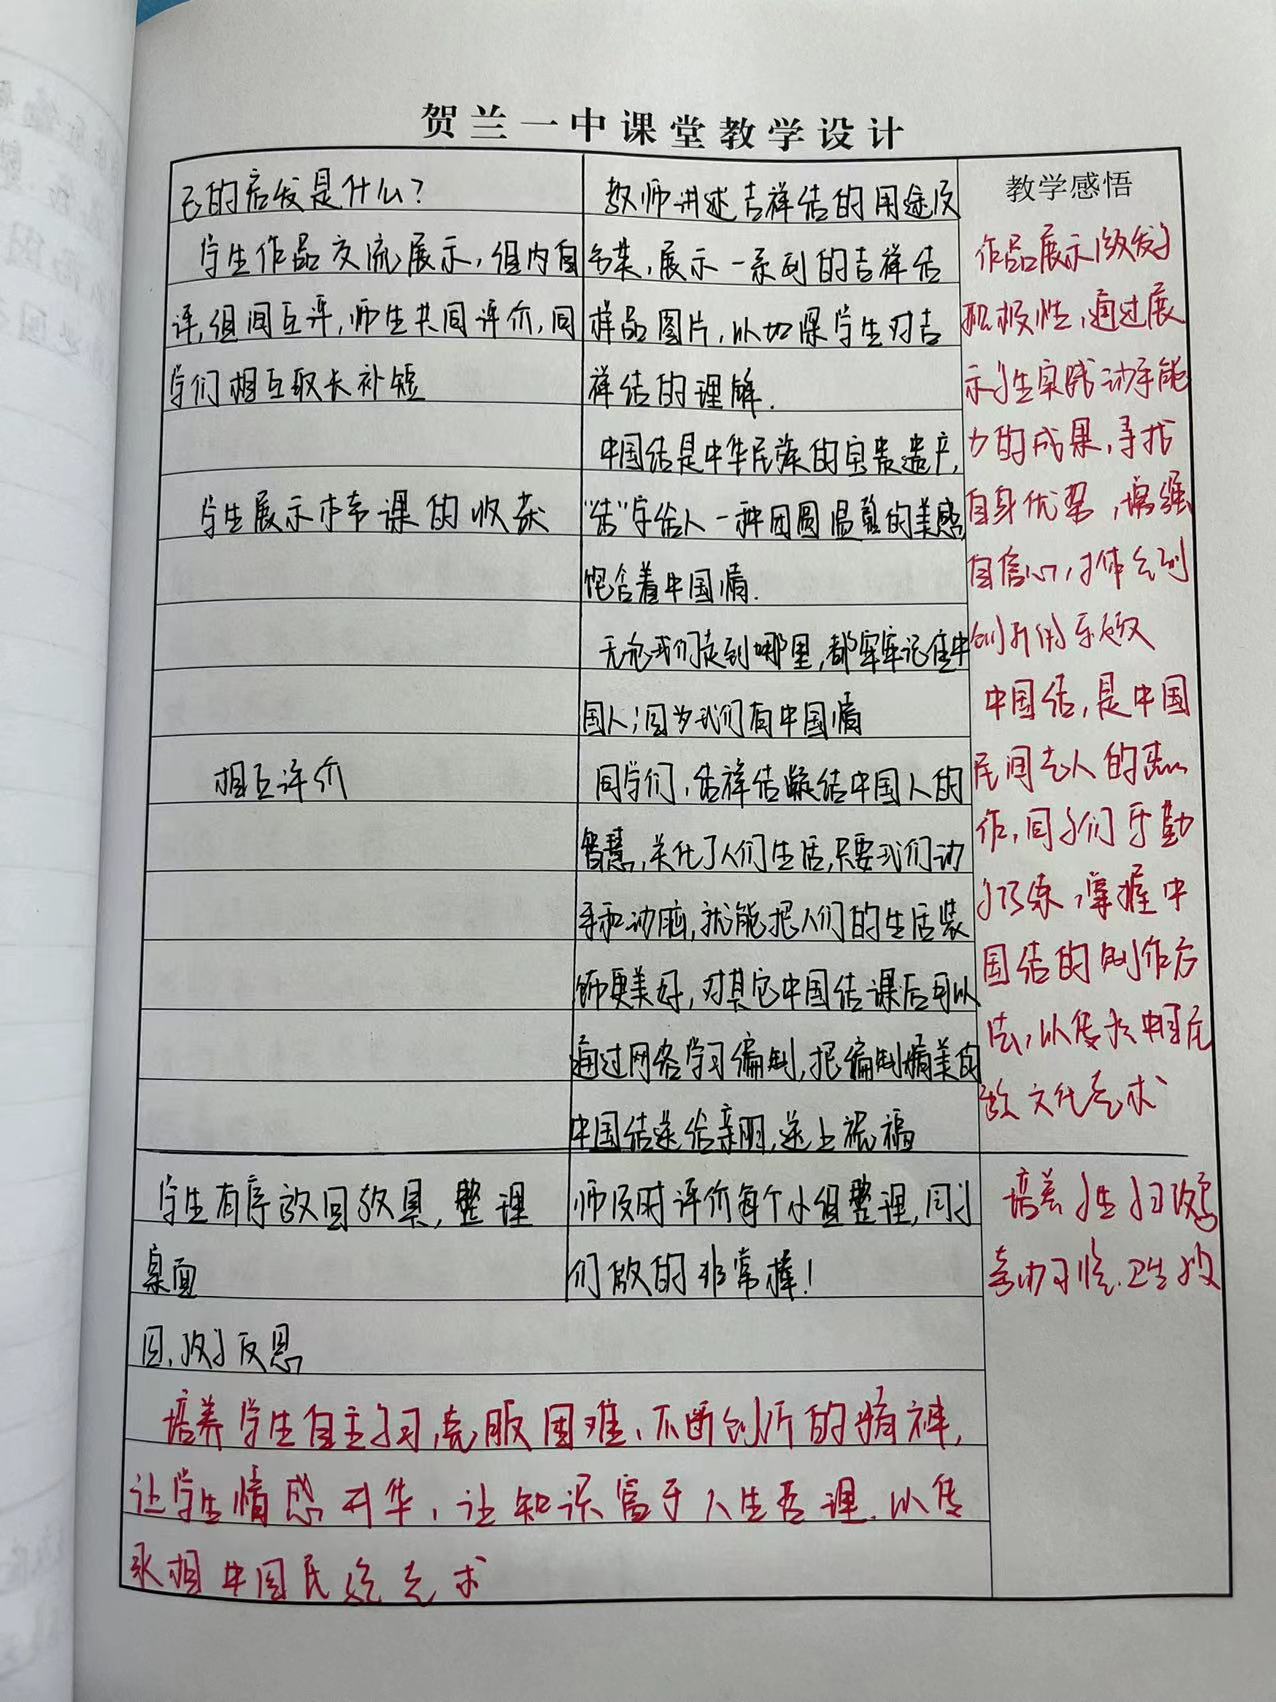 贺兰一中课堂教学设计
己的启发是什么？
学生作品交流展示，组内自
评，组间互评，师生共同评价，同
学们相互取长补短
学生展示本节课的收获
相互评价
学生有序放回教具，整理
桌面
教师讲述吉祥结的用途及
名菜，展示一系列的吉祥结
样品图片，以加深学生对吉
祥结的理解.
中国结是中华民族的宝贵遗产，
“结”字给人一种团圆温馨的美感，
饱含着中国情.
无论我们走到哪里，都牢牢记住中
国人；因为我们有中国情
同学们，吉祥结凝结中国人的
智慧，美化了人们生活，只要我们动
手和动脑，就能把人们的生活装
饰更美好，对其它中国结课后可以
通过网络学习编制，把编制精美的
中国结送给亲朋，送上祝福
师及时评价每个小组整理，同学
们做的非常棒！
教学感悟
作品展示激发了
积极性，通过展
示学生实践动手能
力的成果，寻找
自身优势，增强
自信心，体会到
创新的乐趣
中国结，是中国
民间艺人的
作，同学们要勤
学巧练，掌握中
国结的制作方
法，以传承中国民
族文化艺术
培养学生
习惯
四、教学反思
培养学生自主学习，克服困难，不断创新的精神，
让学生情感升华，让知识富于人生哲理，以传
承中国民族艺术